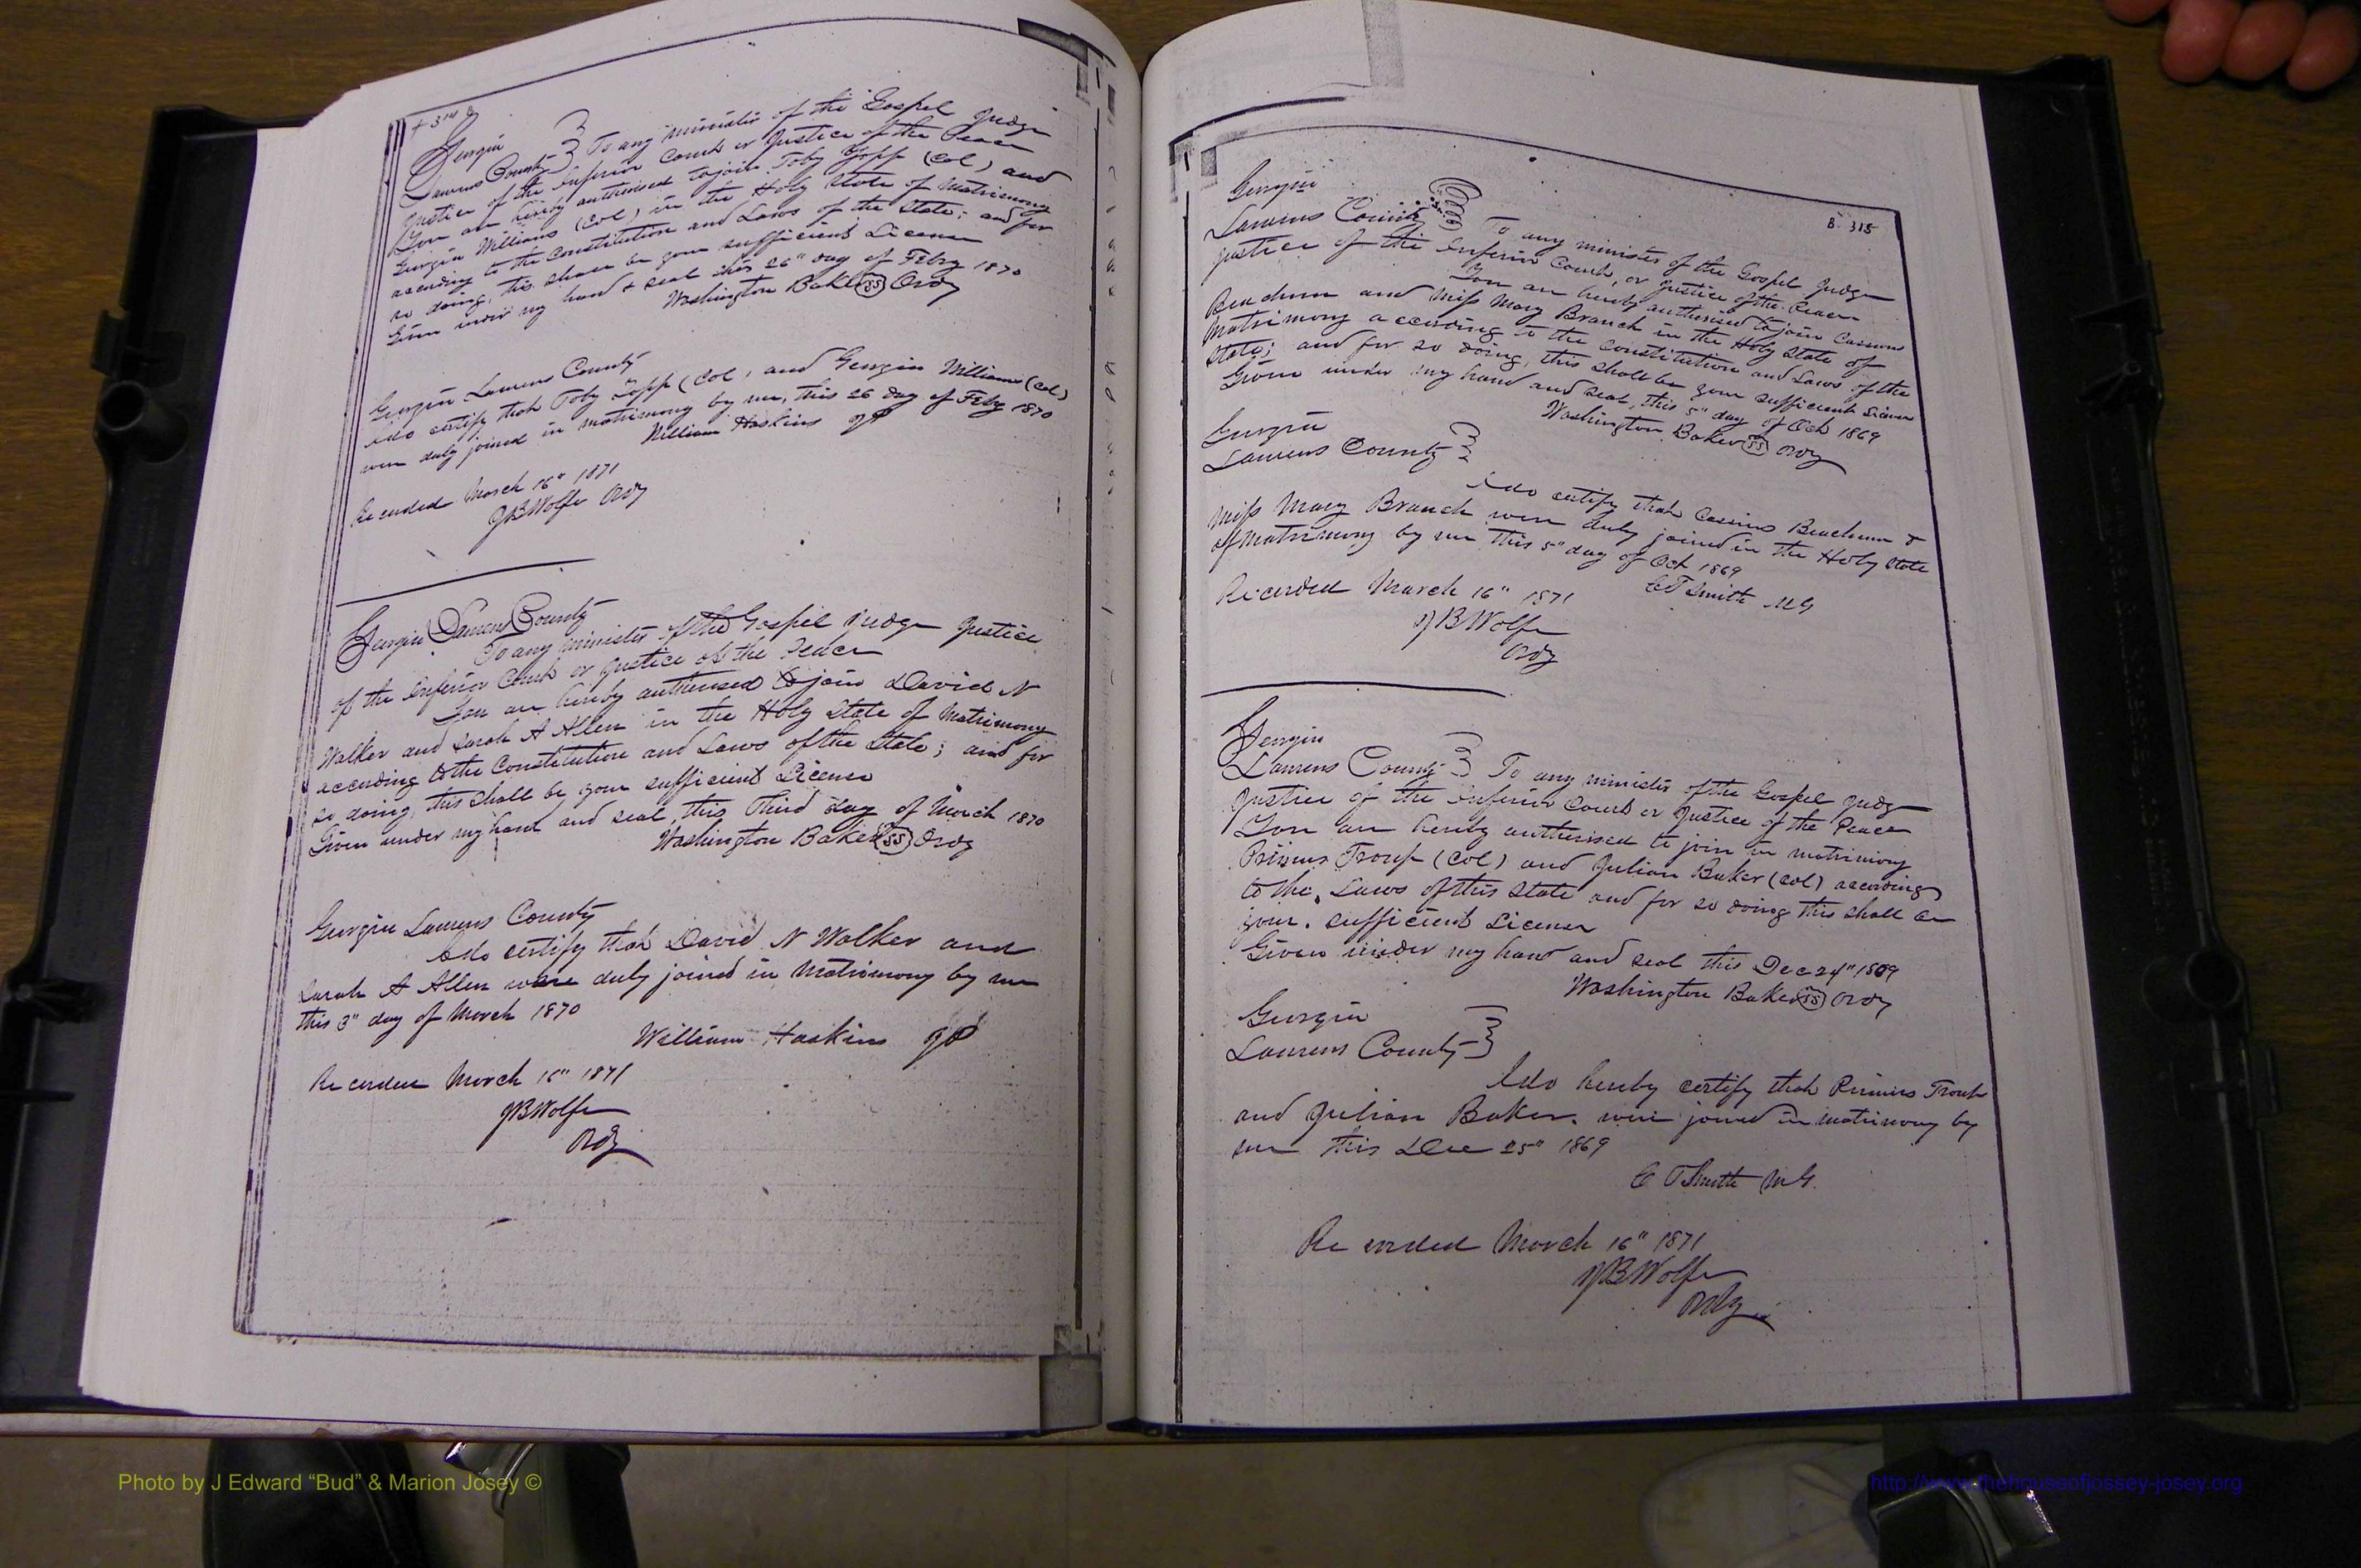 314
Georgia
Laurens County } To any minister of the Gospel Judge
Justice of the Inferior Court or Justice of the Peace
You are hereby authorised to join Toby Yopp (Col) and
Georgia Williams (Col) in the Holy State of Matrimony
according to the Constitution and Laws of the State; and for
so doing, this shall be your sufficient License
Given under my hand & seal this 26" day of Feby 1870
Washington Baker (SS) Ordy
Georgia Laurens County
I do certify that Toby Yopp (Col) and Georgia Williams (Col)
were duly joined in matrimony by me, this 26 day of Feby 1870
William Haskins JP
Recorded March 16" 1871
JBWolfe Ordy
Georgia Laurens County
To any minister of the Gospel Judge Justice
of the Inferior Court or Justice of the Peace
You are hereby authorised to join David N
Walker and Sarah A Allen in the Holy State of Matrimony
according to the Constitution and Laws of the State; and for
so doing, this shall be your sufficient License
Given under my hand and seal, this Third day of March 1870
Washington Baker (SS) Ordy
Georgia Laurens County
I do certify that David N Walker and
Sarah A Allen were duly joined in Matrimony by me
this 3" day of March 1870
William Haskins JP
Recorded March 16" 1871
JBWolfe
Ordy
B. 315
Georgia
Laurens County } To any minister of the Gospel Judge
Justice of the Inferior Court, or Justice of the Peace
You are hereby authorised to join Cassius
Beachum and Miss Mary Branch in the Holy State of
Matrimony according to the Constitution and Laws of the
State; and for so doing, this shall be your sufficient License
Given under my hand and seal, this 5" day of Oct 1869
Washington Baker (SS) Ordy
Georgia
Laurens County }
I do certify that Cassius Beachum &
Miss Mary Branch were duly joined in the Holy State
of Matrimony by me this 5" day of Oct 1869
E T Smith MG
Recorded March 16" 1871
JBWolfe
Ordy
Georgia
Laurens County } To any minister of the Gospel Judge
Justice of the Inferior Court or Justice of the Peace
You are hereby authorised to join in matrimony
Primus Troup (Col) and Julian Baker (Col) according
to the Laws of this State and for so doing this shall be
your sufficient License
Given under my hand and seal this Dec 24" 1869
Washington Baker (SS) Ordy
Georgia
Laurens County }
I do hereby certify that Primus Troup
and Julian Baker. were joined in matrimony by
me this Dec 25" 1869
E T Smith MG.
Recorded March 16" 1871
JBWolfe
Ordy
Photo by J Edward “Bud” & Marion Josey ©
http://www.thehouseofjossey-josey.org